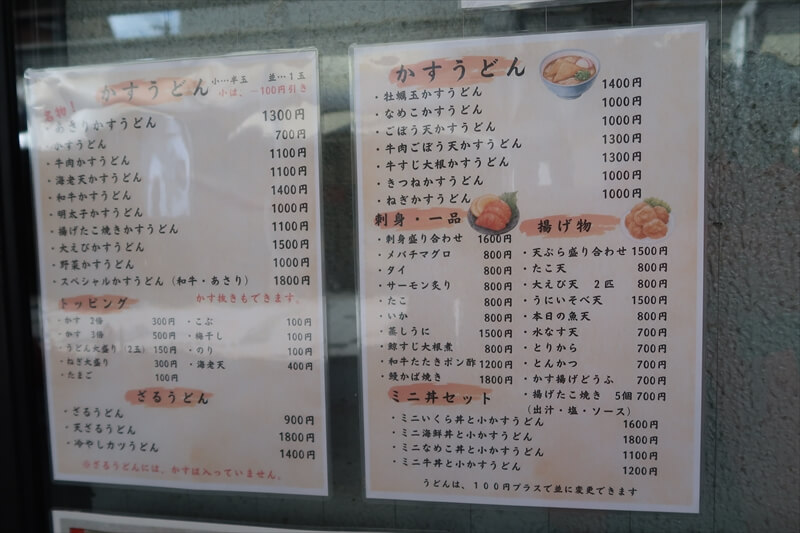 かすうどん 小…半玉 並…1玉
小は、－100円引き
名物!
・あさりかすうどん 1300円
・かすうどん 700円
・牛肉かすうどん 1100円
・海老天かすうどん 1100円
・和牛かすうどん 1400円
・明太子かすうどん 1000円
・揚げたこ焼きかすうどん 1100円
・大えびかすうどん 1500円
・野菜かすうどん 1000円
・スペシャルかすうどん（和牛・あさり） 1800円
トッピング かす抜きもできます。
・かす 2倍 300円
・かす 3倍 500円
・うどん大盛り（2玉）150円
・ねぎ大盛り 300円
・たまご 100円
・こぶ 100円
・梅干し 100円
・のり 100円
・海老天 400円
ざるうどん
・ざるうどん 900円
・天ざるうどん 1800円
・冷やしカツうどん 1400円
※ざるうどんには、かすは入っていません。
かすうどん
・牡蠣玉かすうどん 1400円
・なめこかすうどん 1000円
・ごぼう天かすうどん 1000円
・牛肉ごぼう天かすうどん 1300円
・牛すじ大根かすうどん 1300円
・きつねかすうどん 1000円
・ねぎかすうどん 1000円
刺身・一品
・刺身盛り合わせ 1600円
・メバチマグロ 800円
・タイ 800円
・サーモン炙り 800円
・たこ 800円
・いか 800円
・蒸しうに 1500円
・鯨すじ大根煮 800円
・和牛たたきポン酢 1200円
・鰻かば焼き 1800円
揚げ物
・天ぷら盛り合わせ 1500円
・たこ天 800円
・大えび天 2匹 800円
・うにいそべ天 1500円
・本日の魚天 800円
・水なす天 700円
・とりから 700円
・とんかつ 700円
・かす揚げどうふ 700円
・揚げたこ焼き 5個 700円
（出汁・塩・ソース）
ミニ丼セット
・ミニいくら丼と小かすうどん 1600円
・ミニ海鮮丼と小かすうどん 1800円
・ミニなめこ丼と小かすうどん 1100円
・ミニ牛丼と小かすうどん 1200円
うどんは、100円プラスで並に変更できます